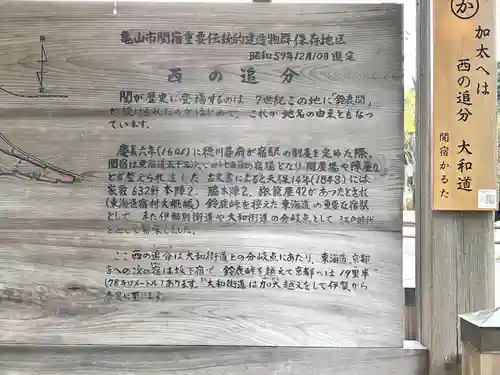 亀山市関宿重要伝統的建造物群保存地区
昭和59年12月10日選定
西の追分
関が歴史に登場するのは 7世紀この地に「鈴鹿関」
が設けられたのがはじめで、これが地名の由来ともなっ
ています。
慶長六年(1601)に徳川幕府が宿駅の制度を定めた際、
関宿は東海道五十三次で四十七番目の宿場となり
古文書によると天保14年(1843)には
家数632軒本陣2、脇本陣2、旅籠屋42があったとされ
(東海道宿村大概帳) 鈴鹿峠を控えた東海道の重要な宿駅
として また伊勢別街道や大和街道の分岐点として 江戸時代
を通して繁栄しました。
ここ西の追分は大和街道との分岐点にあたり、東海道、京都
方への次の宿は坂下宿で、鈴鹿峠を越えて京都へは19里半
(78キロメートル)あります。大和街道は加太越えをして伊賀から
奈良に至ります。
か
加太へは
西の追分
大和道
関宿かるた